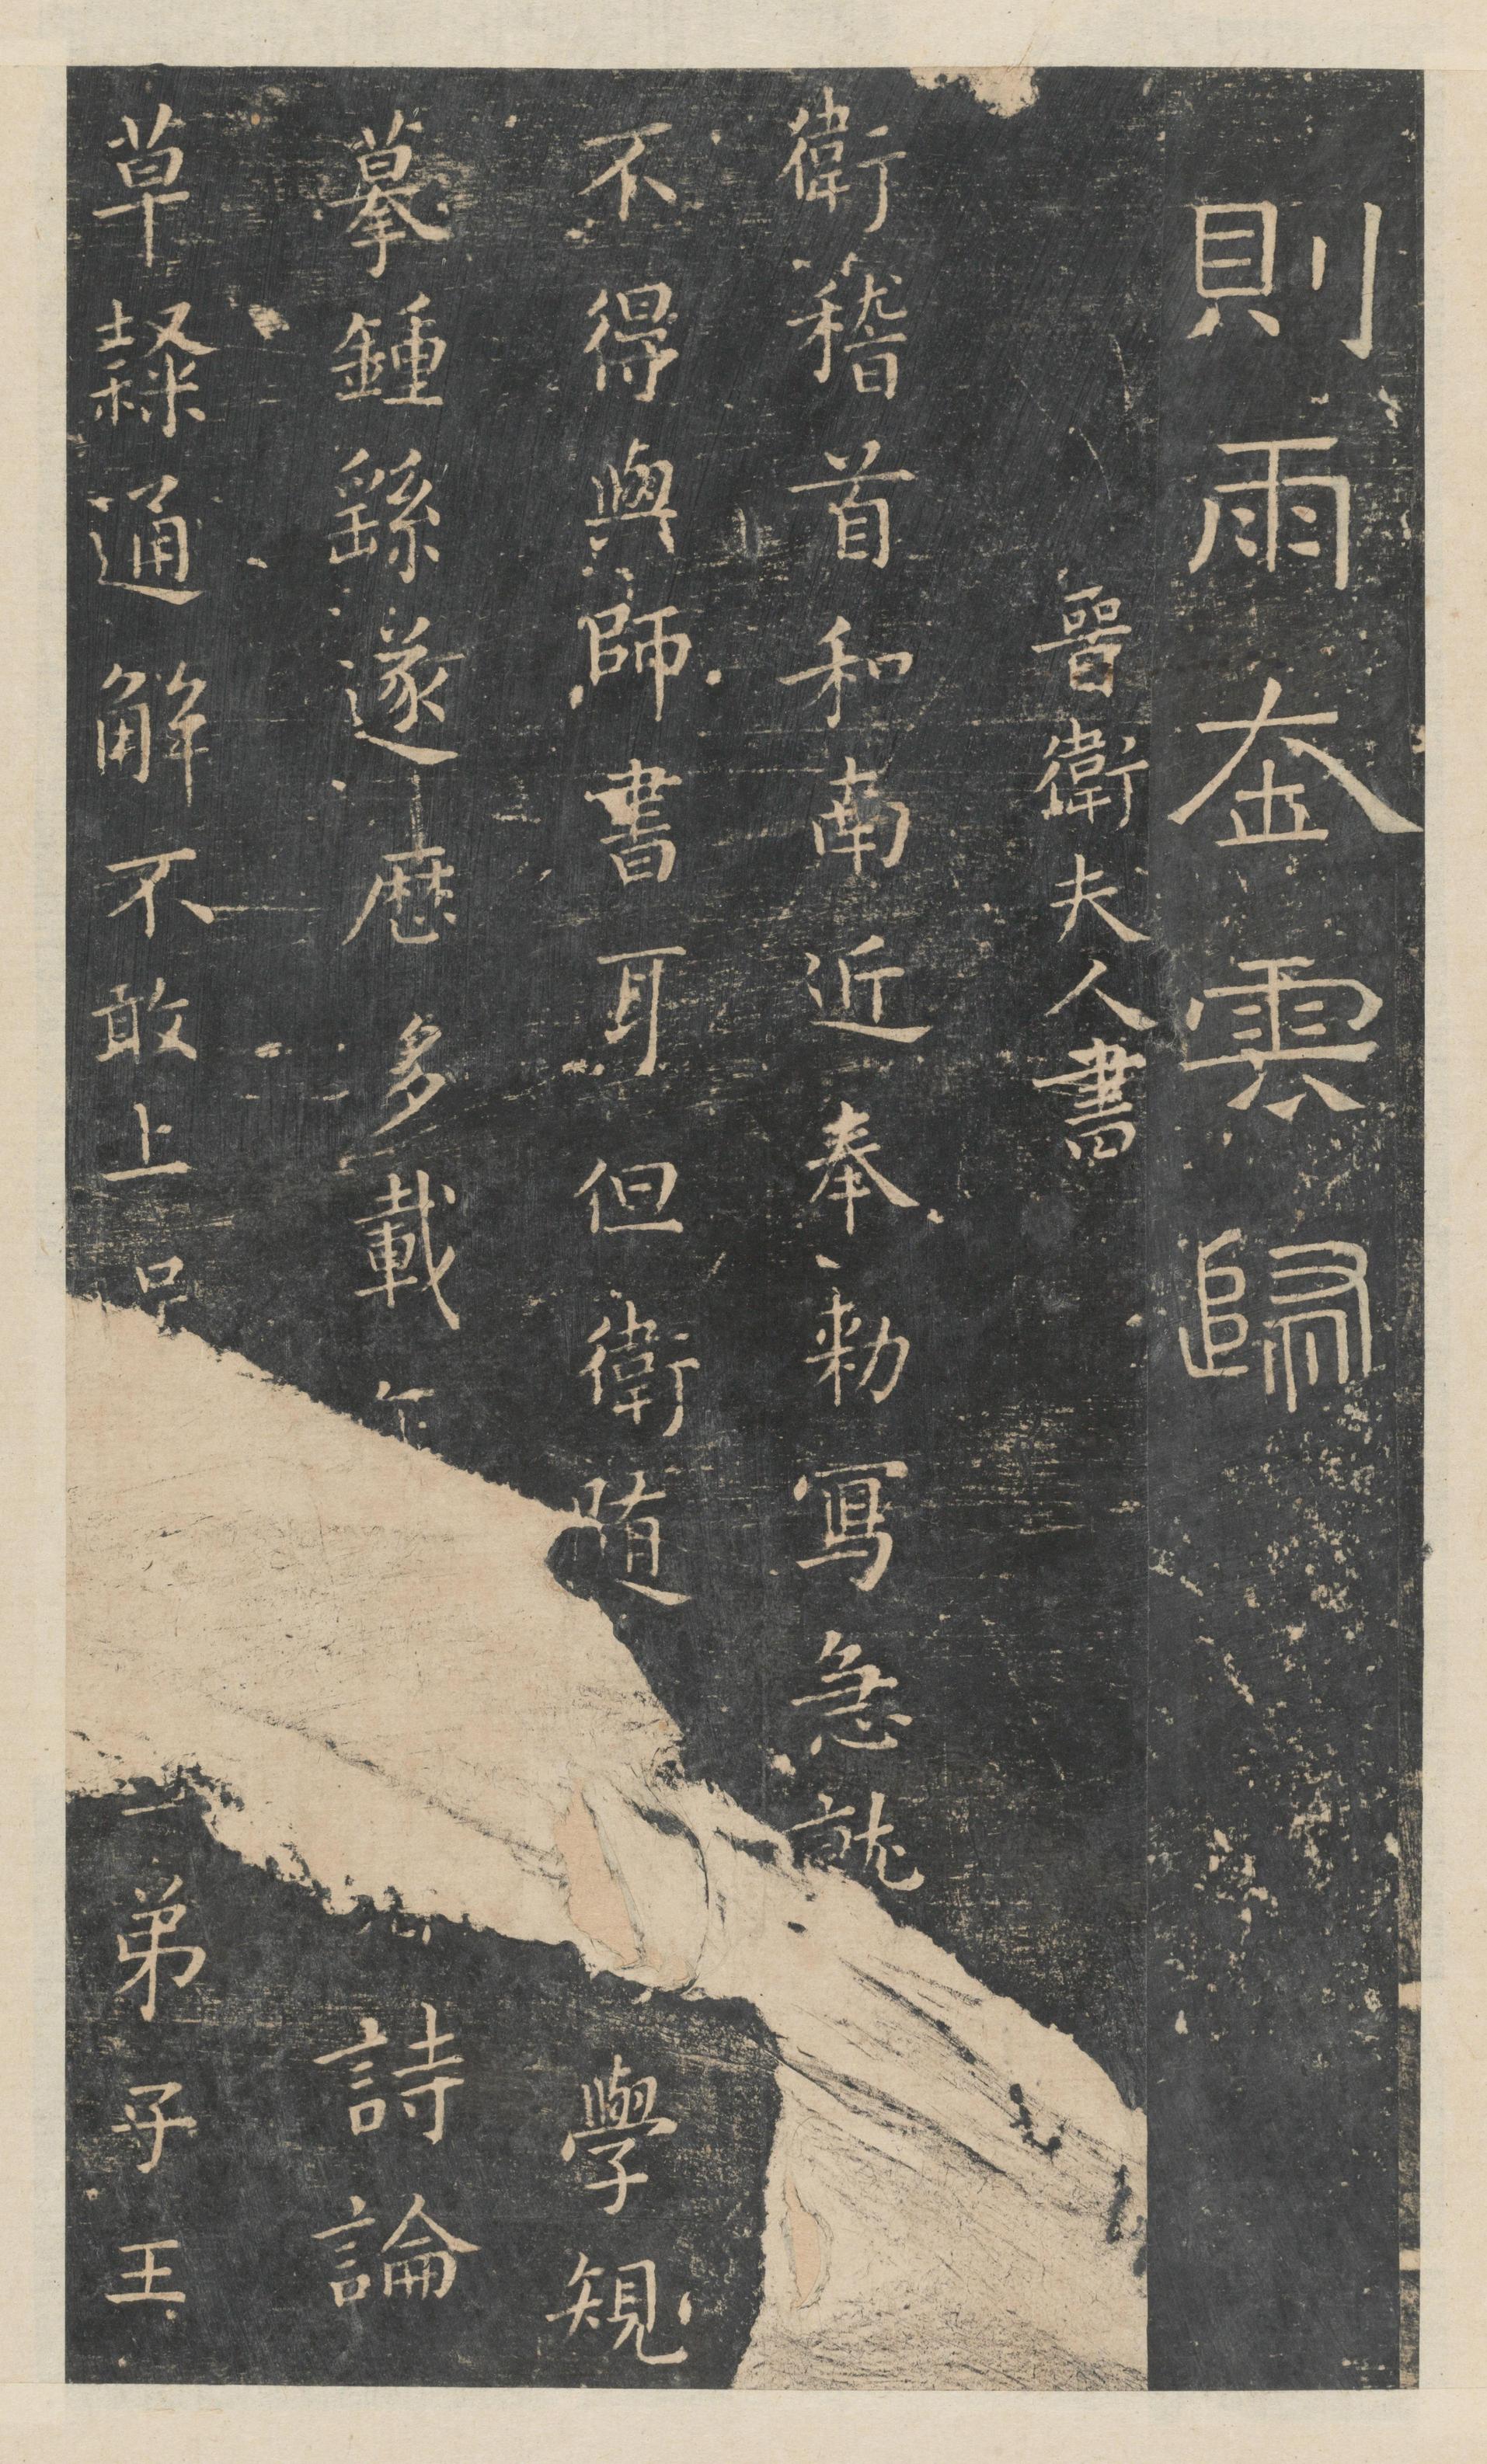 則雨去雲歸
晉衛夫人書
衛稽首和南近奉勅寫急就
不得與師書耳但衛隨學規
摹鍾繇遂歷多載詩論
草隸通解不敢上弟子王